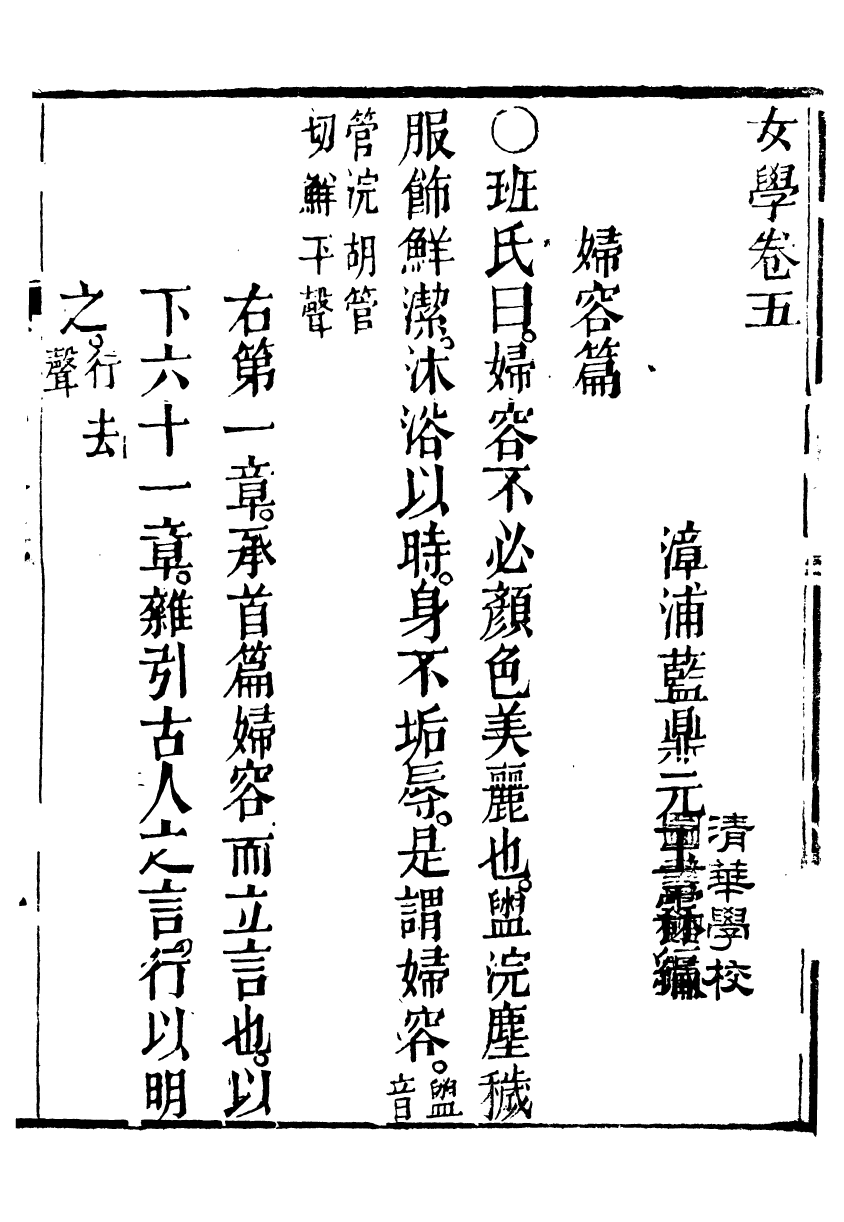 女學卷五
清華學校
漳浦藍鼎元
婦容篇
○班氏曰。婦容不必顏色美麗也。盥浣塵穢
服飾鮮潔。沐浴以時。身不垢辱。是謂婦容。盥音
管浣胡管
切鮮平聲
右第一章。承首篇婦容而立言也。以
下六十一章。雜引古人之言行以明
之。行去聲